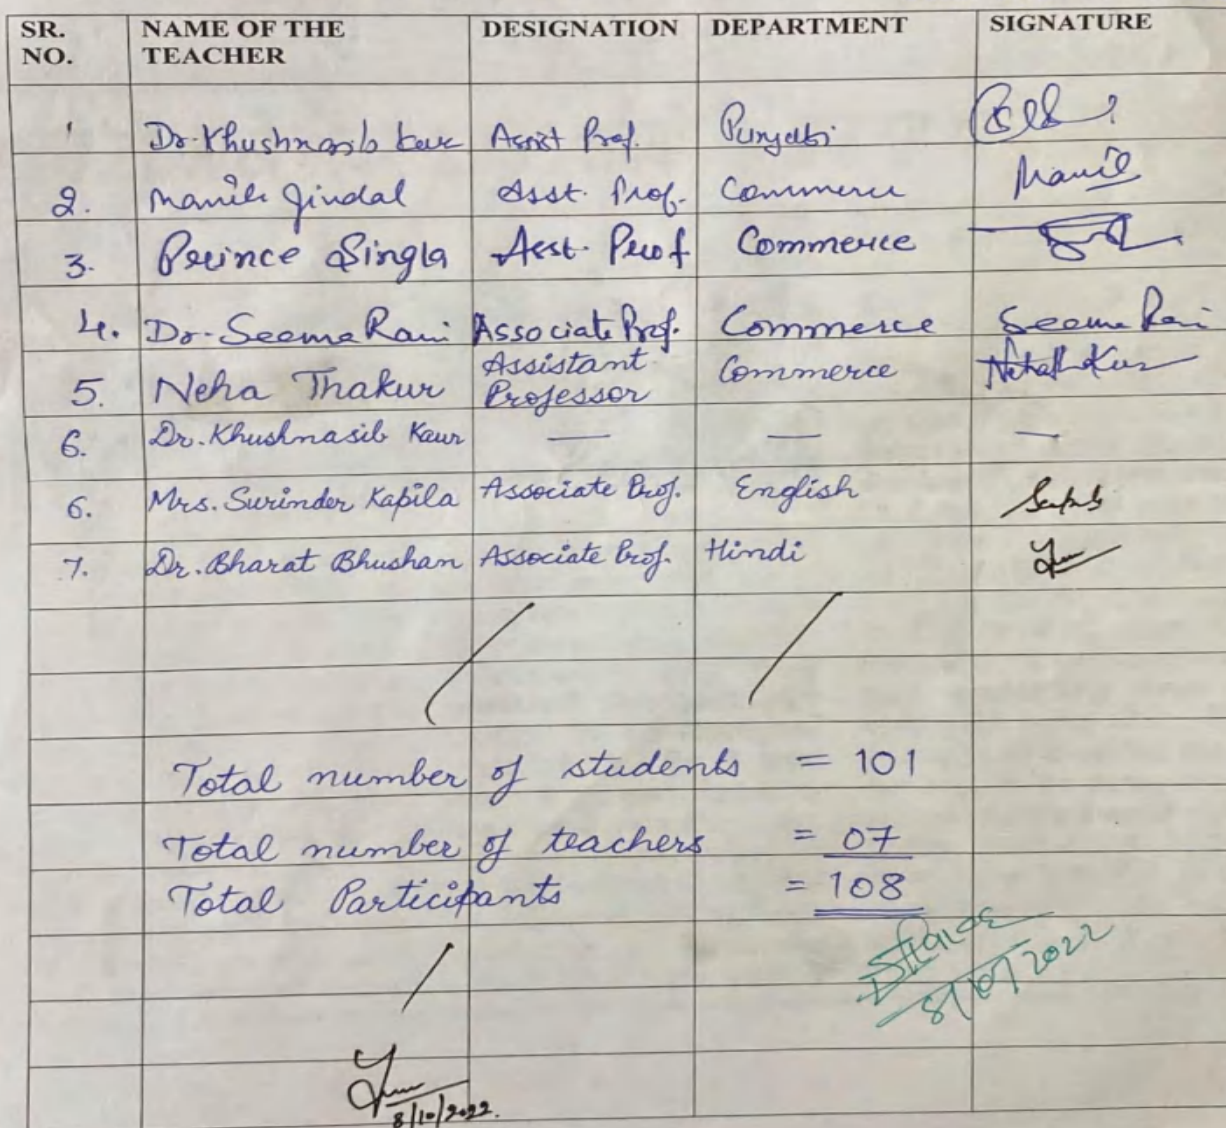 SR. NO. NAME OF THE TEACHER DESIGNATION DEPARTMENT SIGNATURE
1 Dr. Khushnasib Kaur Assist Prof. Punjabi
2. Manik Jindal Asst. Prof. Commerce Manik
3. Prince Singla Asst. Prof Commerce
4. Dr. Seema Rani Associate Prof. Commerce Seema Rani
5. Neha Thakur Assistant Professor Commerce
6. Dr. Khushnasib Kaur — — —
6. Mrs. Surinder Kapila Associate Prof. English
7. Dr. Bharat Bhushan Associate Prof. Hindi
Total number of students = 101
Total number of teachers = 07
Total Participants = 108
8/10/2022
8/10/2022.